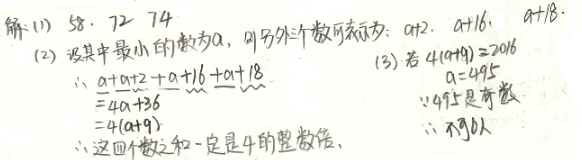 解:(1) 58. 72 74
(2) 设其中最小的数为a, 则另外三个数可表示为: a+2. a+16. a+18.
∴ a+a+2+a+16+a+18
=4a+36
=4(a+9).
∴这四个数之和一定是4的整数倍.
(3) 若4(a+9)=2016
a=495
∵495是奇数
∴不可以